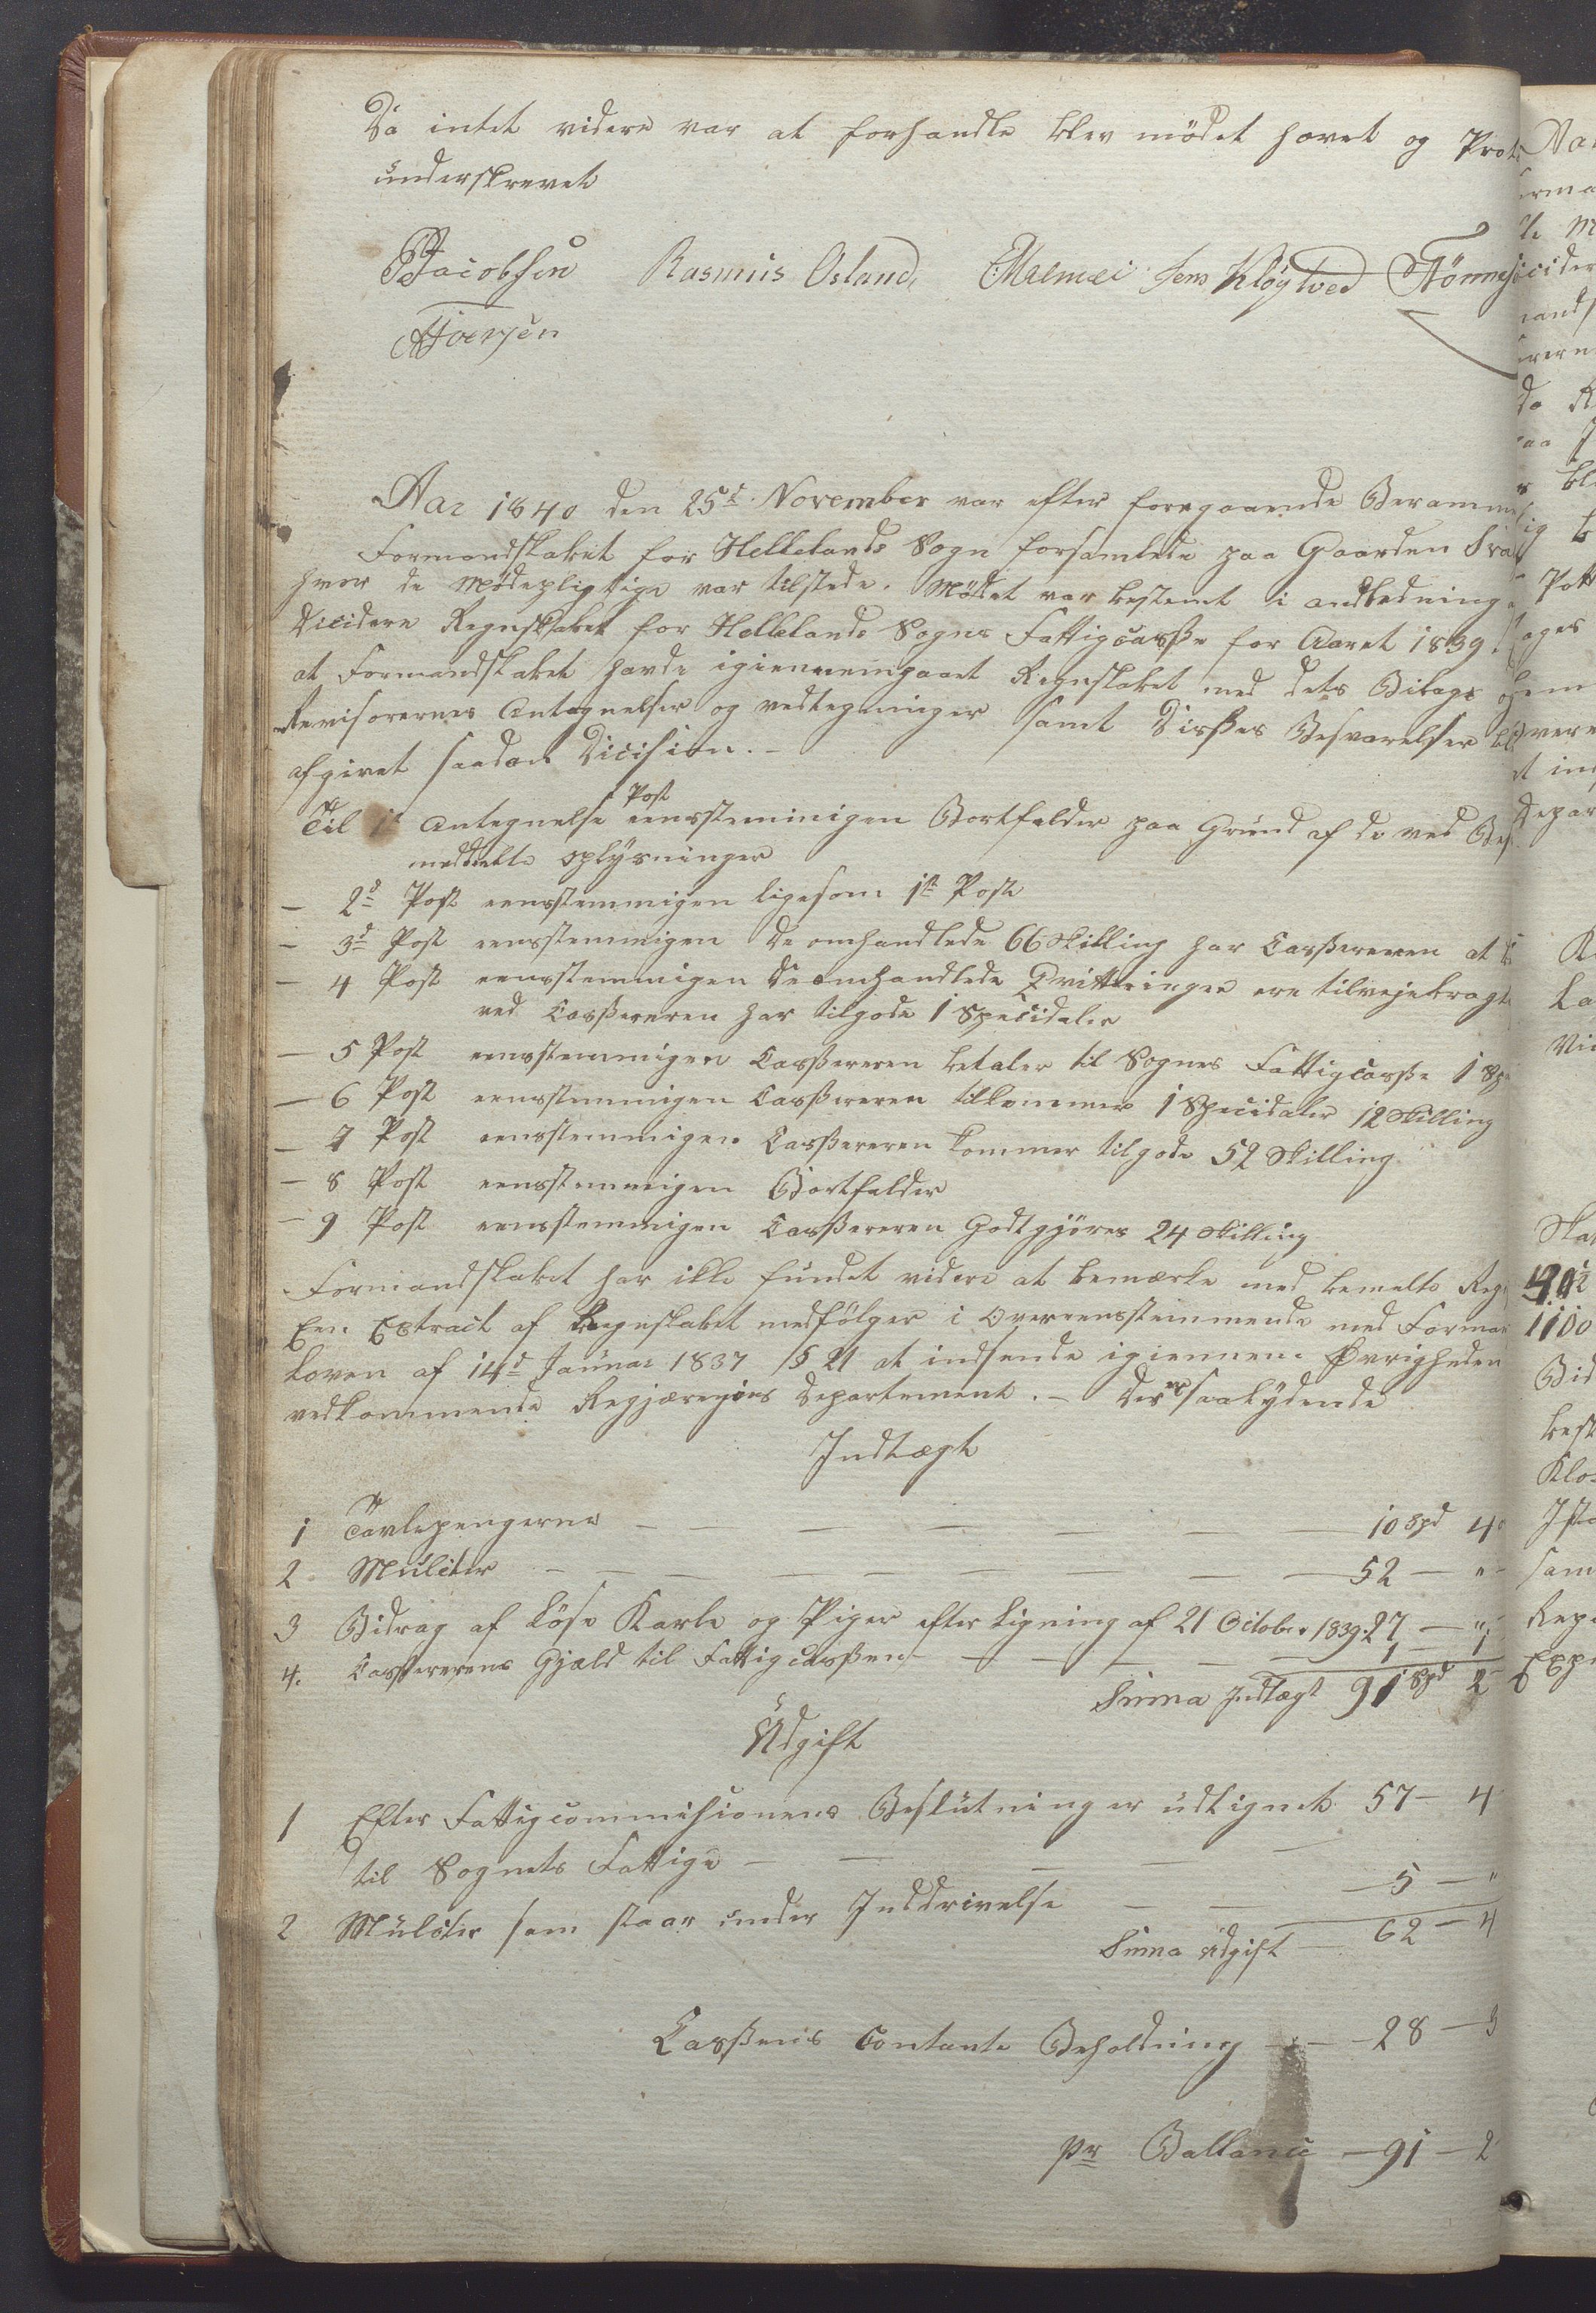 Da intet videre var at forhandle blev mödet hævet og Prot
underskrevet
Jacobsen Rasmus Osland, Malmei Jens Kløgtved Tönnes
Aar 1840 den 25d November var efter foregaaende Beramme
Formandskabet for Hellelands Sogn forsamlede paa Gaarden
hvor de Mödepligtige var tilstede. Mödet var bestemt i andledning
Dicidere Regnskabet for Hellelands Sogns Fattigcasse for Aaret 1839.
at Formandskabet havde igiennemgaaet Regnskabet med dets Bilage og
Revisorernes Antegnelser og vedtegninger samt Disses Besvarelser bl
afgivet saadan Dicision. -
Til 1st Antegnelse Post eensstemmigen Bortfalder paa Grund af de ved Bes
meddelte oplysninger
- 2d Post eensstemmigen ligesom 1ste Post
- 3d Post eensstemmigen De omhandlede 66 Skilling har Cassereren at
- 4 Post eensstemmigen De omhandlede Qvitteringer ere tilvejebragt
ved Cassereren har tilgode 1 Specidaler
- 5 Post eensstemmigen Cassereren betaler til Sognes Fattigcasse 1 Sp
- 6 Post eensstemmigen Cassereren tilkommer 1 Specidaler 12 Skilling
- 7 Post eensstemmigen Cassereren kommer tilgode 52 Skilling
- 8 Post eensstemmigen Bortfalder
- 9 Post eensstemmigen Cassereren Godtgjöres 24 Skilling
Formandskabet har ikke fundet videre at bemærke med bemelte Reg
Een Extract af Regnskabet medfölger i Overeensstemmende med Forman
Loven af 14d Januar 1837 § 21 at indsende igiennem Övrigheden
vedkommende Regjærings Departement. - Der er saalydende
Indtægt
1 Tavlepengerne - 10 Spd 40
2 Mulcter - 52 - "
3 Bidrag af Löse Karle og Piger efter Ligning af 21 October 1839. 27 - "
4. Cassererens Gjæld til Fattigcassen - 1 -
Suma Indtægt 91 Spd 2
Udgift
1 Efter Fattigcommissionens Beslutninger udlignet 57 - 4
til Sognets Fattige -
2 Mulcter som staar under Inddrivelse - 5 - "
Suma Udgift - 62 - 4
Cassens Contante Beholdning - 28 - 3
pr Ballance - 91 - 2